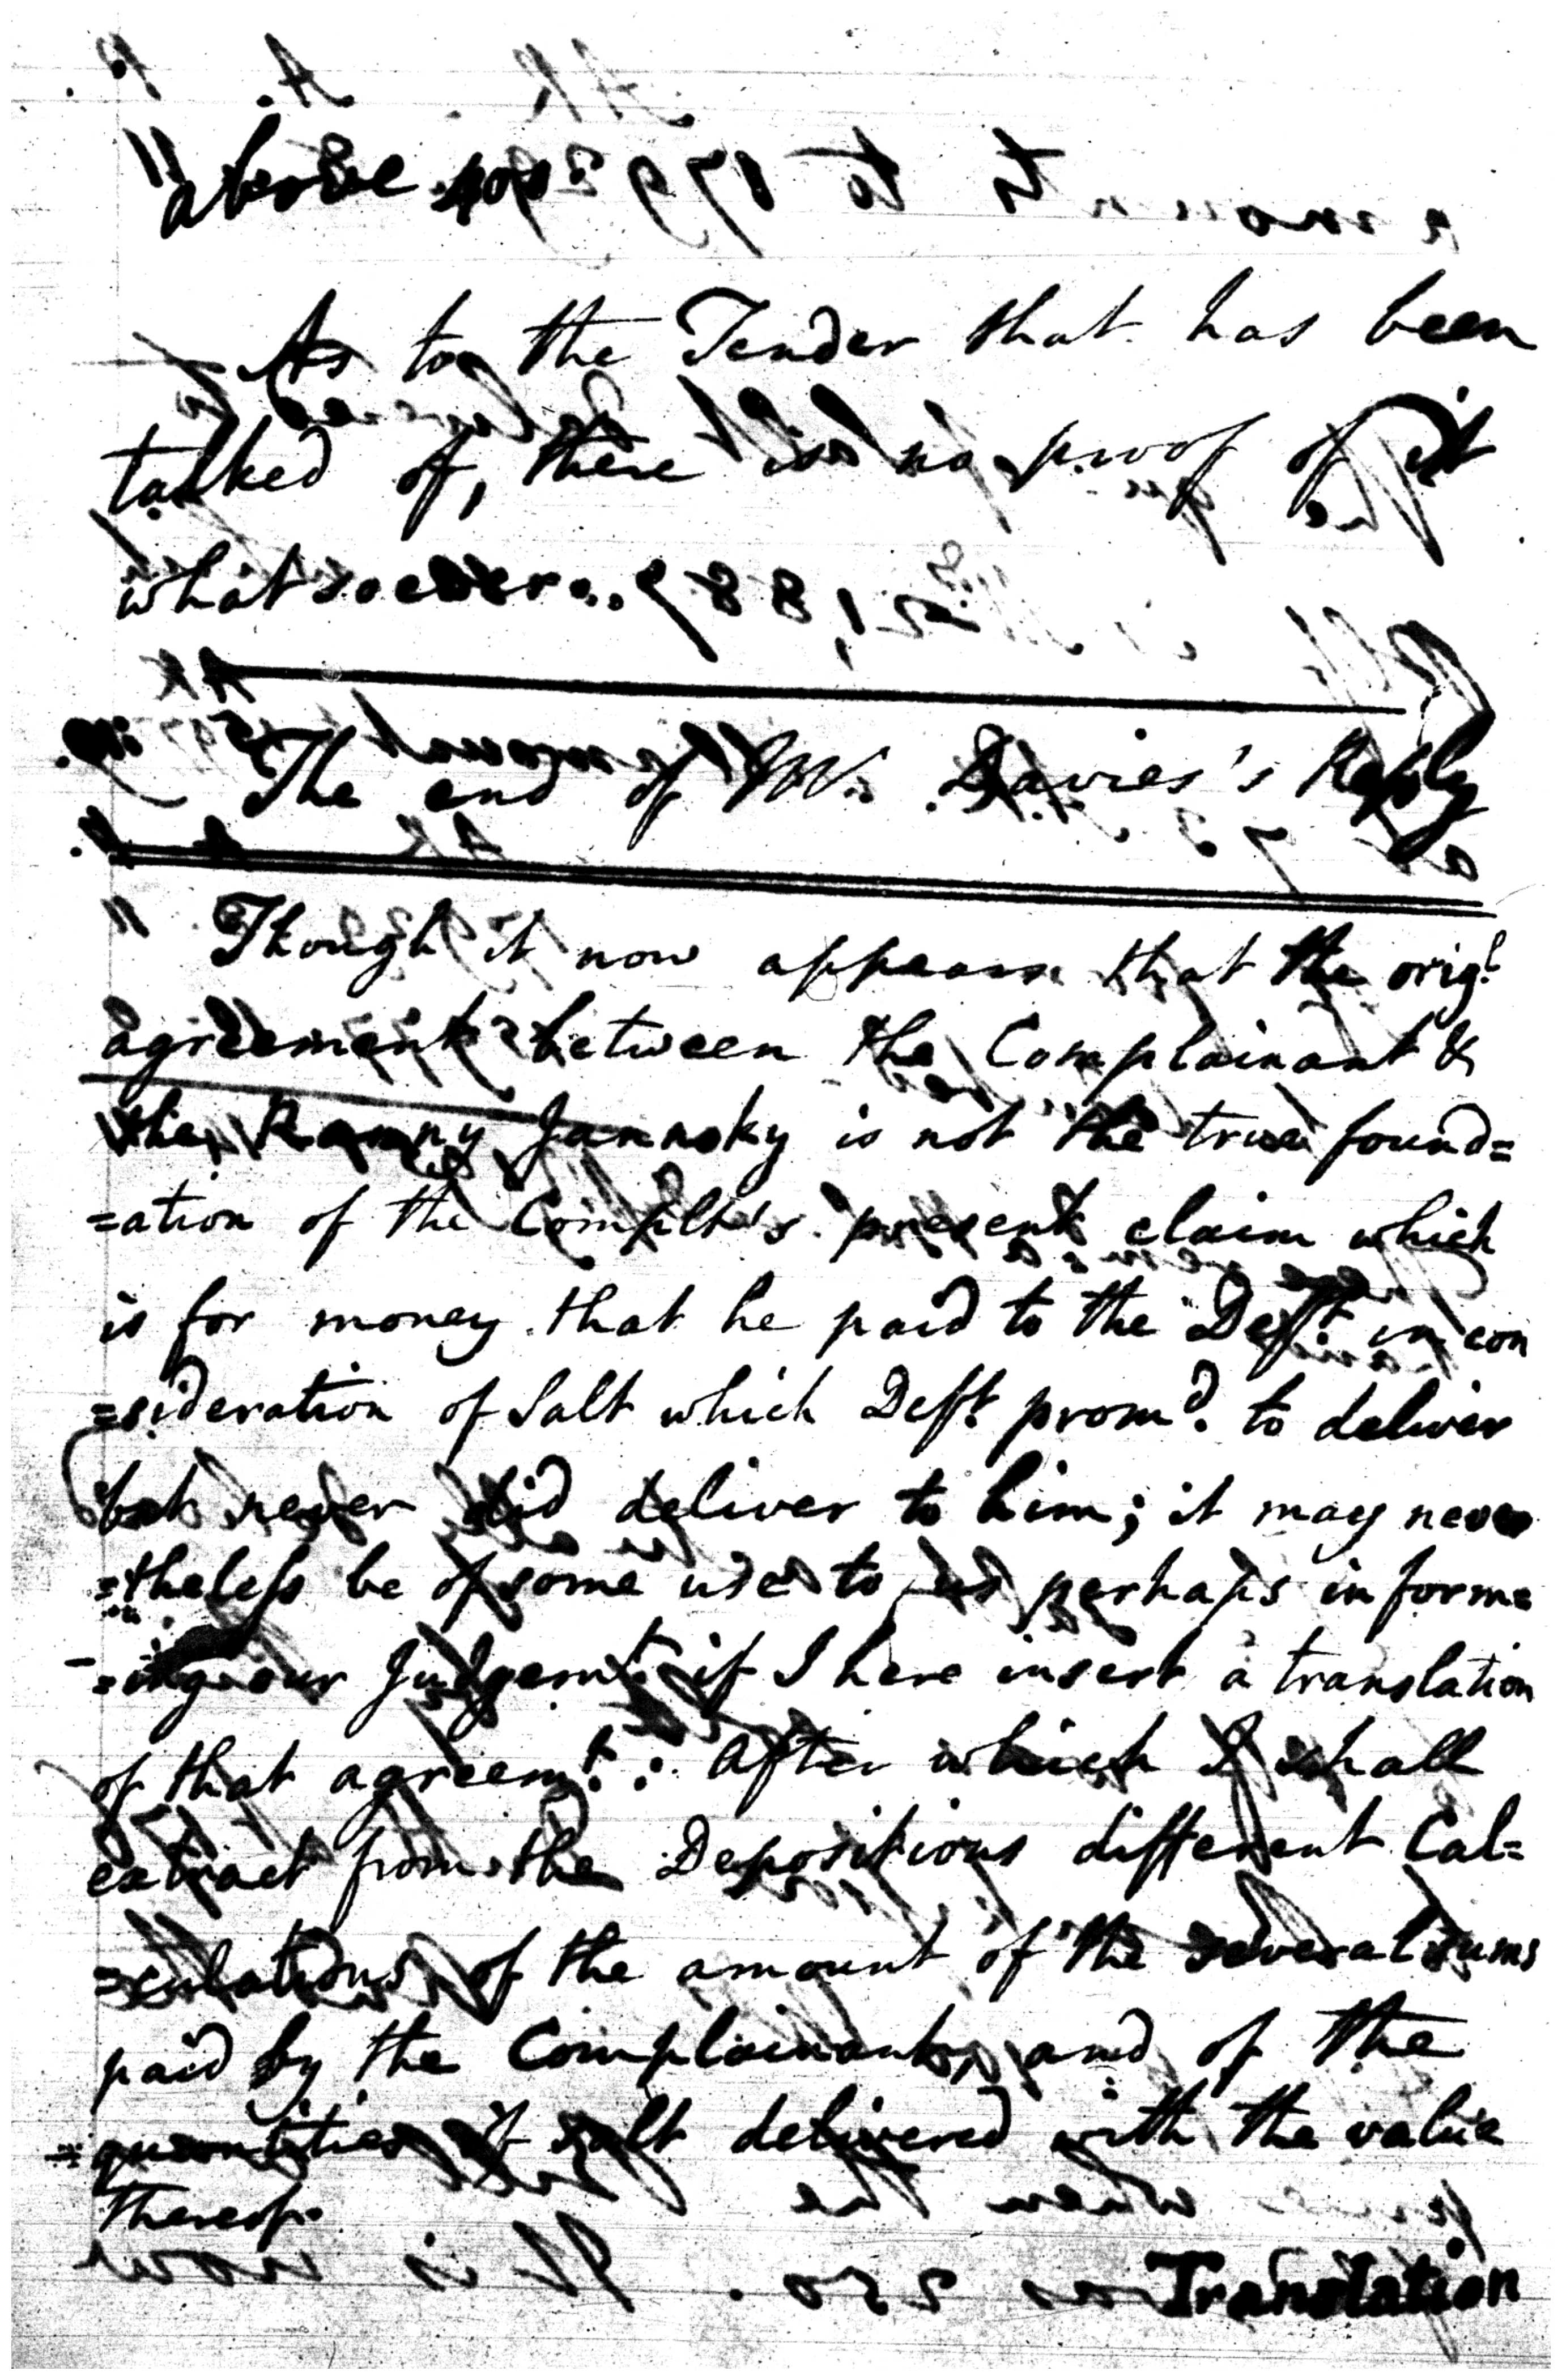 "above
As to the Tender that has been
talked of, there is no proof of it
whatsoever..
The end of Mr. Davies's Reply
" Though it now appears that the orig.l
agreement between the Complainant &
the Ranny Jannoky is not the true found=
=ation of the Complt's. present claim which
is for money that he paid to the Deft. in con
=sideration of Salt which Deft. prom.d to deliver
but never did deliver to him; it may never
=theless be of some use to us perhaps in form=
=ing our Judgemt. if I here insert a translation
of that agreemt.: After which I shall
extract from the Depositions different Cal=
=culations of the amount of the several sums
paid by the Complainant, and of the
=quantities of salt delivered with the value
thereof.
Translation